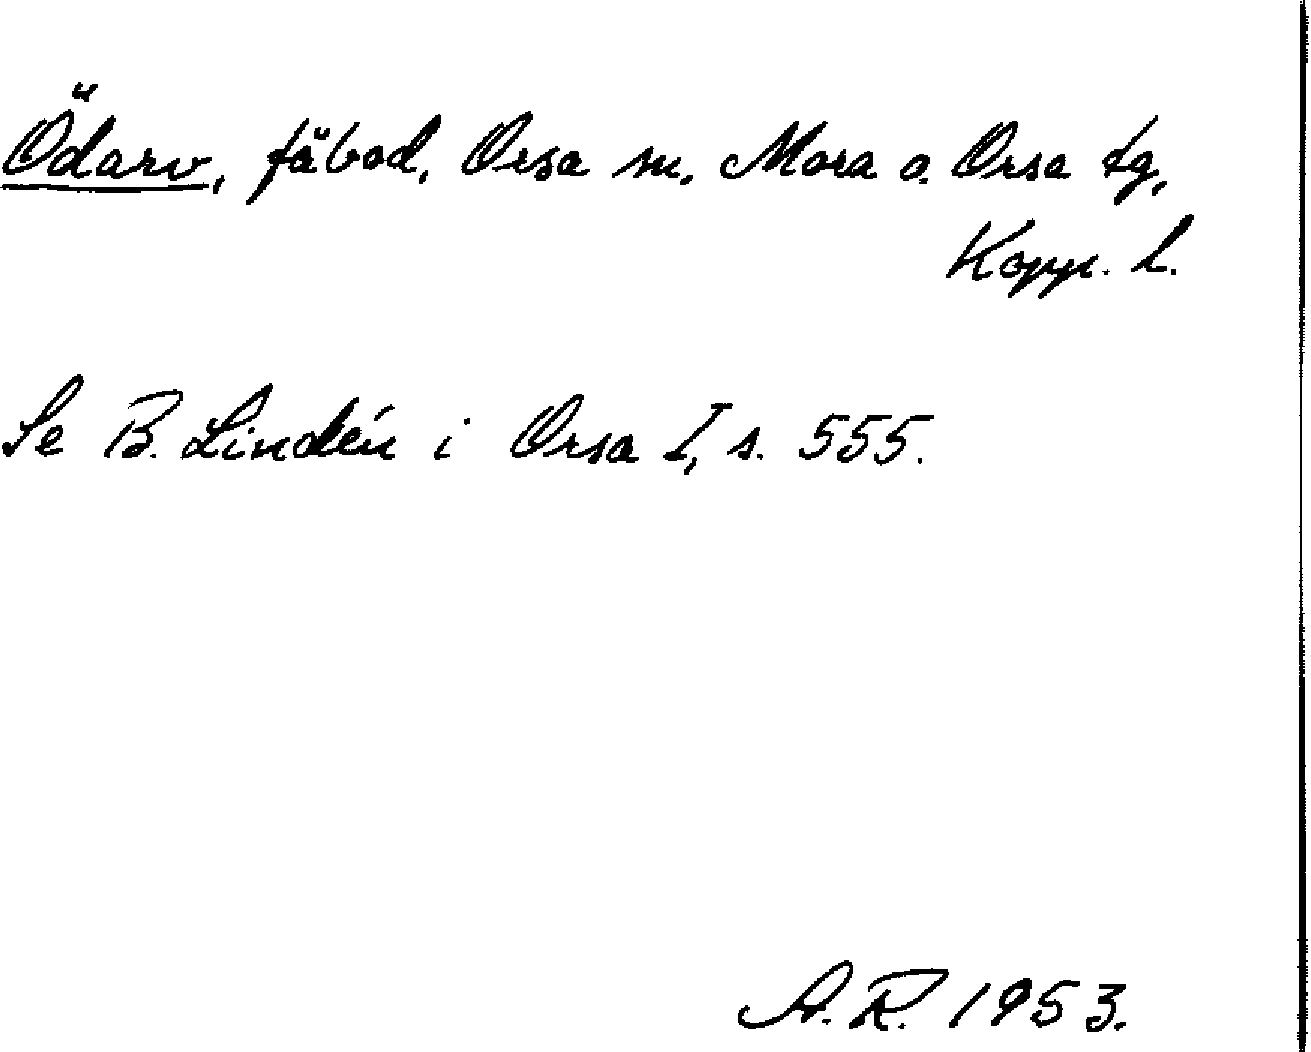 Ödarv, fäbod, Orsa sn, Mora o. Orsa tg,
Kopp. l.
Se B. Lindén i Orsa I, s. 555.
A.R. 1953.